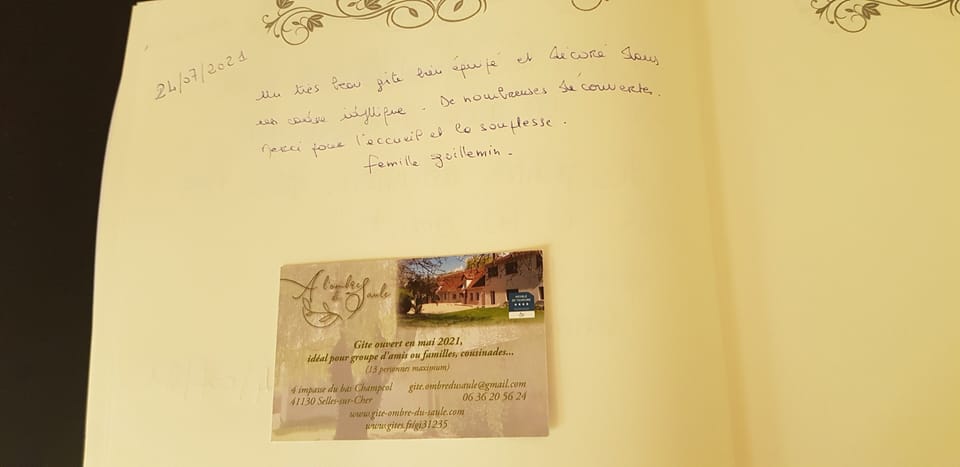 24/07/2021
Un très beau gîte bien équipé et décoré dans
un cadre idyllique. De nombreuses découvertes.
Merci pour l'accueil et la souplesse.
famille Guillemin.
A l'ombre
du
Saule
Gîte ouvert en mai 2021,
idéal pour groupe d'amis ou familles, cousinades...
(13 personnes maximum)
4 impasse du bas Champcol
41130 Selles-sur-Cher
gite.ombredusaule@gmail.com
06 36 20 56 24
www.gite-ombre-du-saule.com
www.gites.fr/gj31235